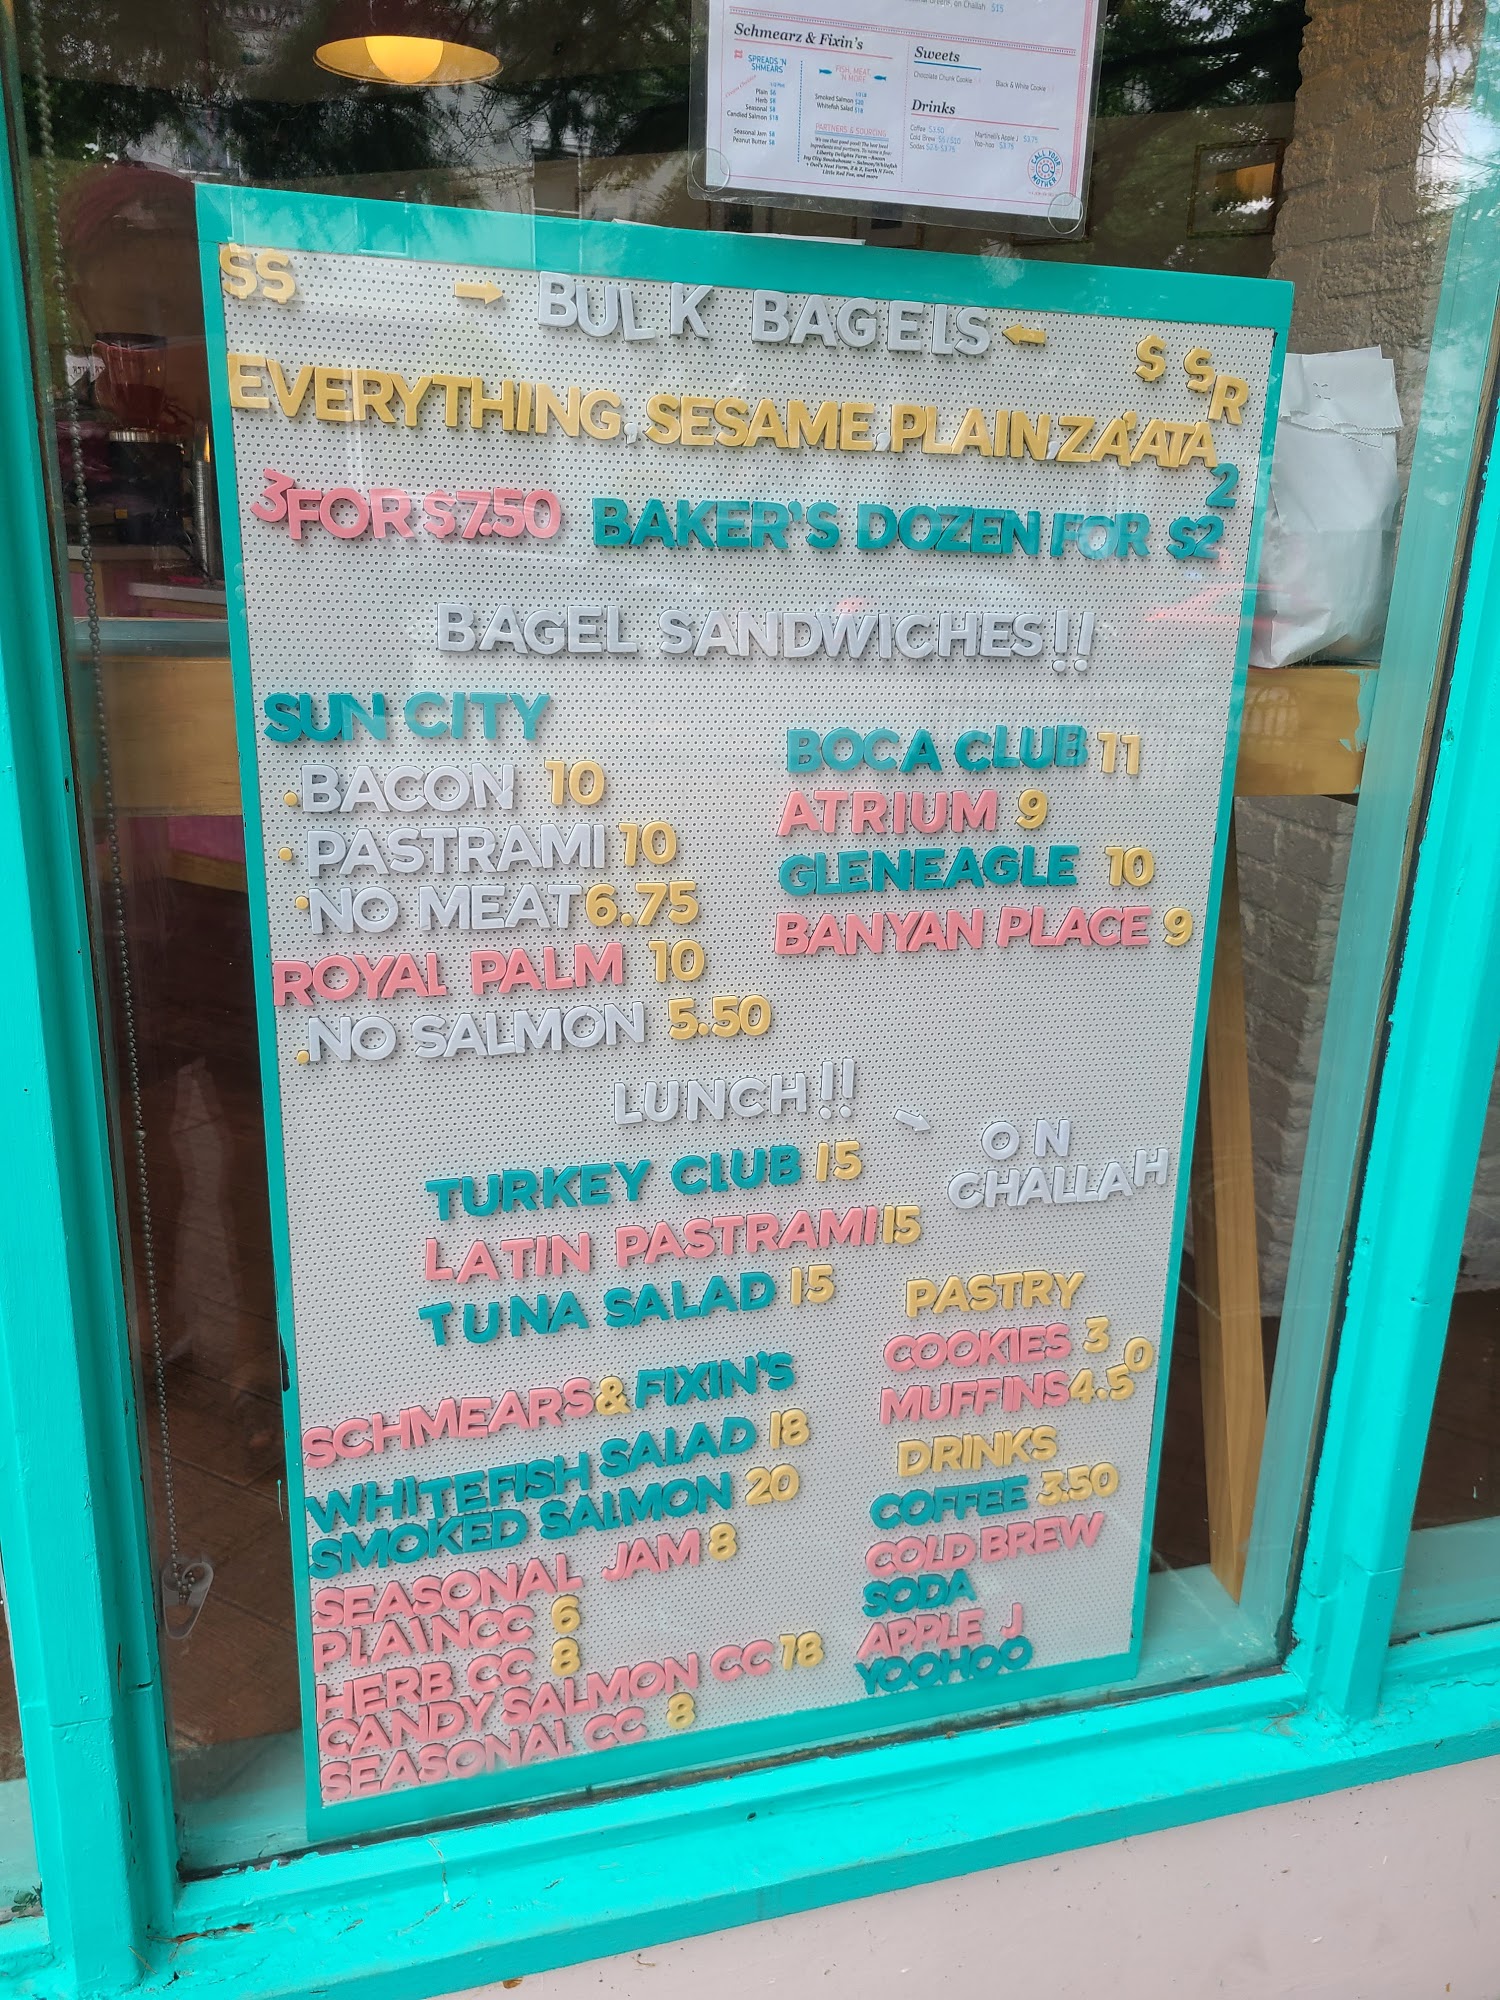 on Challah $15
Schmearz & Fixin's
SPREADS 'N
SHMEARS
Plain $6
Herb $8
Seasonal $8
Candied Salmon $18
Seasonal Jam $8
Peanut Butter $8
FISH, MEAT
'N MORE
Smoked Salmon $20
Whitefish Salad $18
PARTNERS & SOURCING
Sweets
Chocolate Chunk Cookie
Black & White Cookie
Drinks
Coffee $3.50
Cold Brew
Sodas
Martinelli's Apple J $3.75
Yoo-hoo $3.75
CALL YOUR
MOTHER
$$ → BULK BAGELS ← $$
EVERYTHING, SESAME, PLAIN, ZA'ATAR
3 FOR $7.50 BAKER'S DOZEN FOR $22
BAGEL SANDWICHES!!
SUN CITY
• BACON 10
• PASTRAMI 10
• NO MEAT 6.75
ROYAL PALM 10
• NO SALMON 5.50
BOCA CLUB 11
ATRIUM 9
GLENEAGLE 10
BANYAN PLACE 9
LUNCH!! → ON
CHALLAH
TURKEY CLUB 15
LATIN PASTRAMI 15
TUNA SALAD 15
SCHMEARS & FIXIN'S
WHITEFISH SALAD 18
SMOKED SALMON 20
SEASONAL JAM 8
PLAIN CC 6
HERB CC 8
CANDY SALMON CC 18
SEASONAL CC 8
PASTRY
COOKIES 3
MUFFINS 4.50
DRINKS
COFFEE 3.50
COLD BREW
SODA
APPLE J
YOOHOO